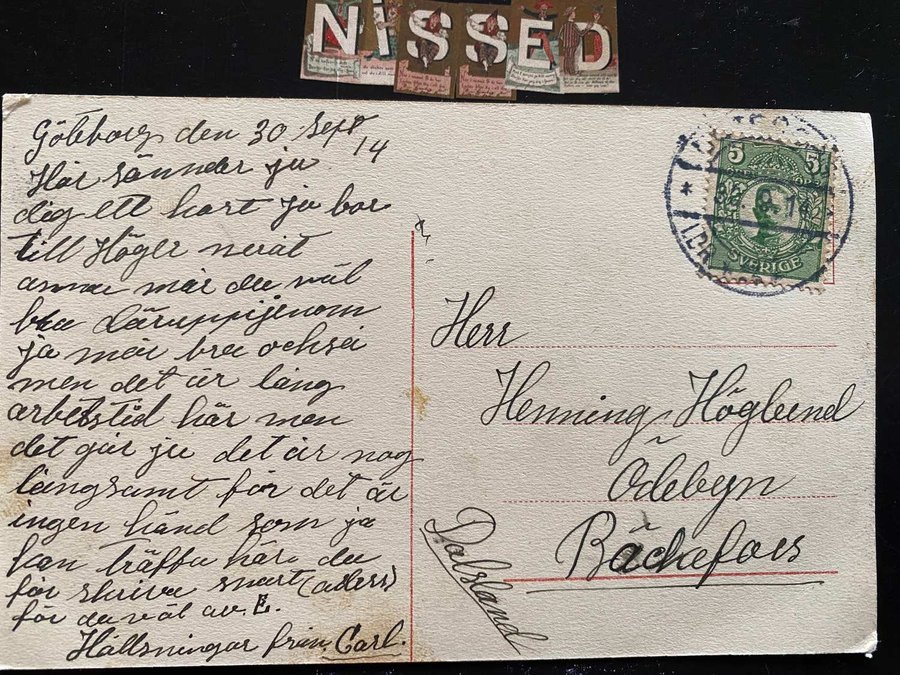 NISSED
Göteborg den 30 Sept
14
Här sänder ja
dig ett kort ja bor
till Höger neråt
annu mår du väl
bra däruppijenom
ja mår bra ochså
men det är lång
arbetstid här men
det går ju det är nog
långsamt för det är
ingen händ som ja
kan träffa här du
får skriva snart (adess)
får du väl av. E.
Hällsningar från Carl.
5 5
SVERIGE
Herr
Henning Höglund
Ödebyn
Bäckefors
Dalsland